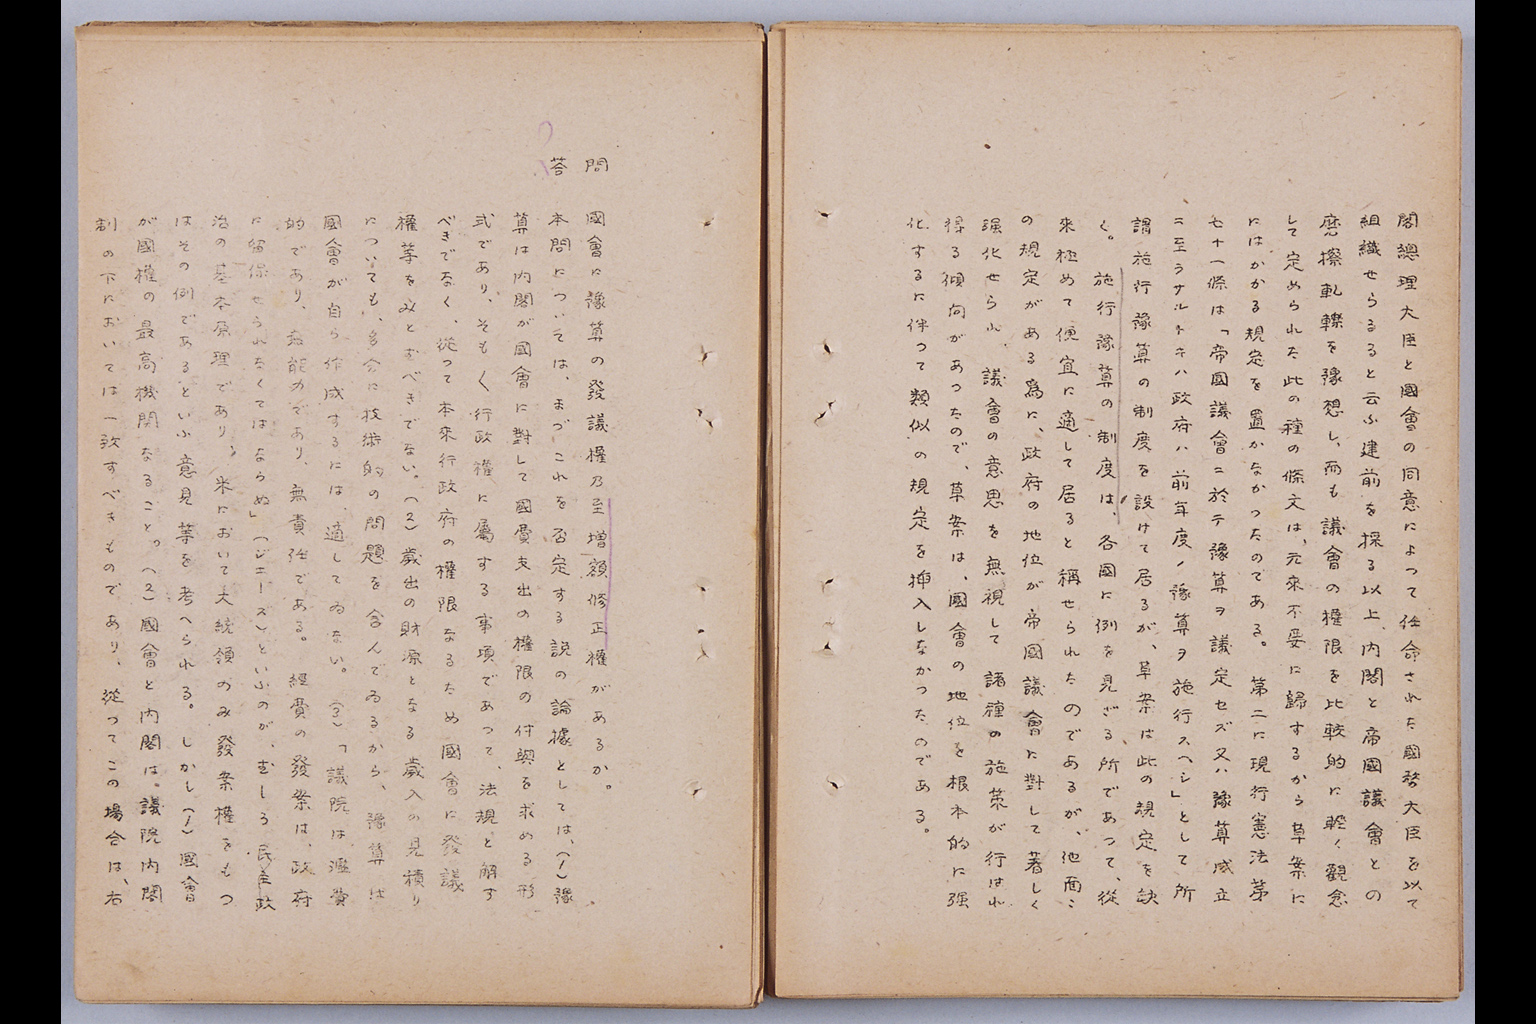 閣總理大臣と國會の同意によつて任命された國務大臣を以て
組織せらるると云ふ建前を採る以上、内閣と帝國議會との
磨擦軋轢を豫想し、而も議會の權限を比較的に軽く觀念
して定められた此の種の條文は、元來不妥に歸するから草案に
はかかる規定を置かなかつたのである。第二に現行憲法第
七十一條は「帝國議會ニ於テ豫算ヲ議定セズ又ハ豫算成立
ニ至ラサルトキハ政府ハ前年度ノ豫算ヲ施行スヘシ」として所
謂施行豫算の制度を設けて居るが、草案は此の規定を缺
く。施行豫算の制度は、各國に例を見ざる所であつて、從
來極めて便宜に適して居ると稱せられたのであるが、他面こ
の規定がある爲に、政府の地位が帝國議會に對して著しく
强化せられ、議會の意思を無視して諸種の施策が行はれ
得る傾向があつたので、草案は、國會の地位を根本的に强
化するに伴つて類似の規定を挿入しなかつたのである。
問 國會に豫算の發議權乃至増額修正權があるか。
答 本問については、まづこれを否定する説の論據としては、(1)豫
算は内閣が國會に對して國費支出の權限の付與を求める形
式であり、そもそも行政權に屬する事項であつて、法規と解す
べきでなく、從つて本來行政府の權限なるため國會に發議
權等をみとむべきでない。(2)歳出の財源となる歳入の見積り
についても、多分に技術的の問題を含んでゐるから、豫算は
國會が自ら作成するには、適してゐない。(3)「議院は濫費
的であり、無能力であり、無責任である。經費の發案は、政府
に留保せられなくてはならぬ」(ジエーズ)といふのが、むしろ民主政
治の基本原理であり、米において大統領のみ發案權をもつ
はその例であるといふ意見等を考へられる。しかし(1)國會
が國權の最高機関なること。(2)國會と内閣は、議院内閣
制の下においては一致すべきものであり、從つてこの場合は、右